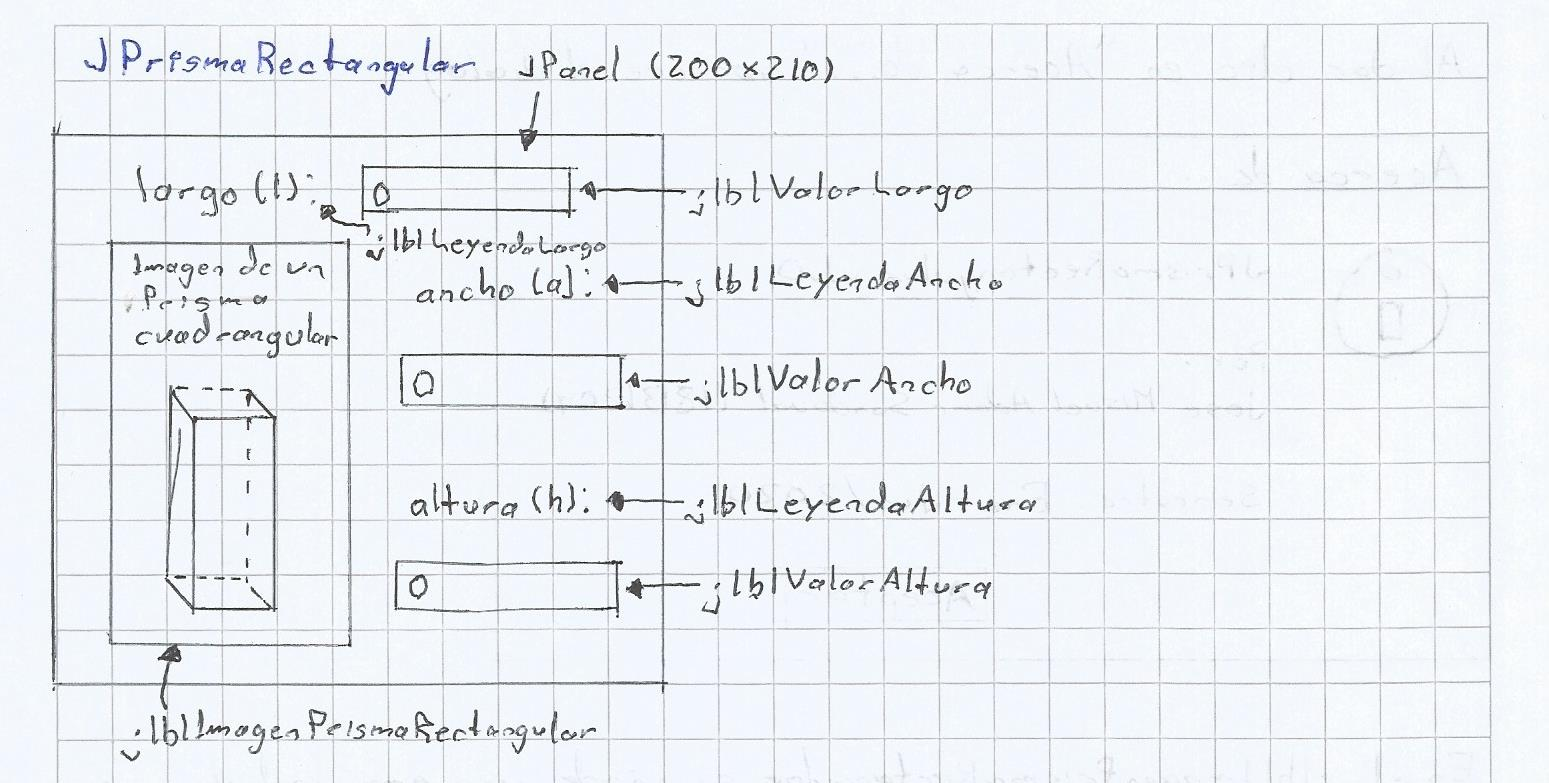 JPrismaRectangular JPanel (200 x 210)
largo (l): 0 jlblValorLargo
jlblLeyendaLargo
Imagen de un
Prisma
cuadrangular
ancho (a): jlblLeyendaAncho
0 jlblValorAncho
altura (h): jlblLeyendaAltura
0 jlblValorAltura
jlblImagenPrismaRectangular